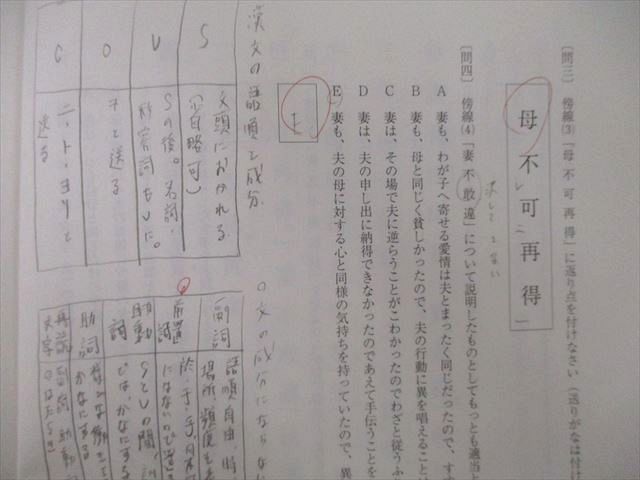 〔問三〕 傍線⑶「母 不 可 再 得」に返り点を付けなさい（送りがなは付け
母 不レ 可二 再 得一
〔問四〕 傍線⑷「妻 不 敢 違」について説明したものとしてもっとも適当と
A 妻も、わが子へ寄せる愛情は夫とまったく同じだったので、す
B 妻も、母と同じく貧しかったので、夫の行動に異を唱えること
C 妻は、その場で夫に逆らうことがこわかったのでわざと従うふ
D 妻は、夫の申し出に納得できなかったのであえて手伝うことを
E 妻も、夫の母に対する心と同様の気持ちを持っていたので、異
E
漢文の語順と成分
S 文頭におかれる
（省略可）
V Sの後。名詞・
形容詞もVに。
O ヲと送る
C ニ、ト、ヨリと
送る
○文の成分にならない
副詞 語順自由 時
場所、頻度を
前置詞 於・于・乎、
にならないので
助動詞 SとVの間、
では、かなにする
助詞
かなにする
再読文字 副詞 助動
のはたらき